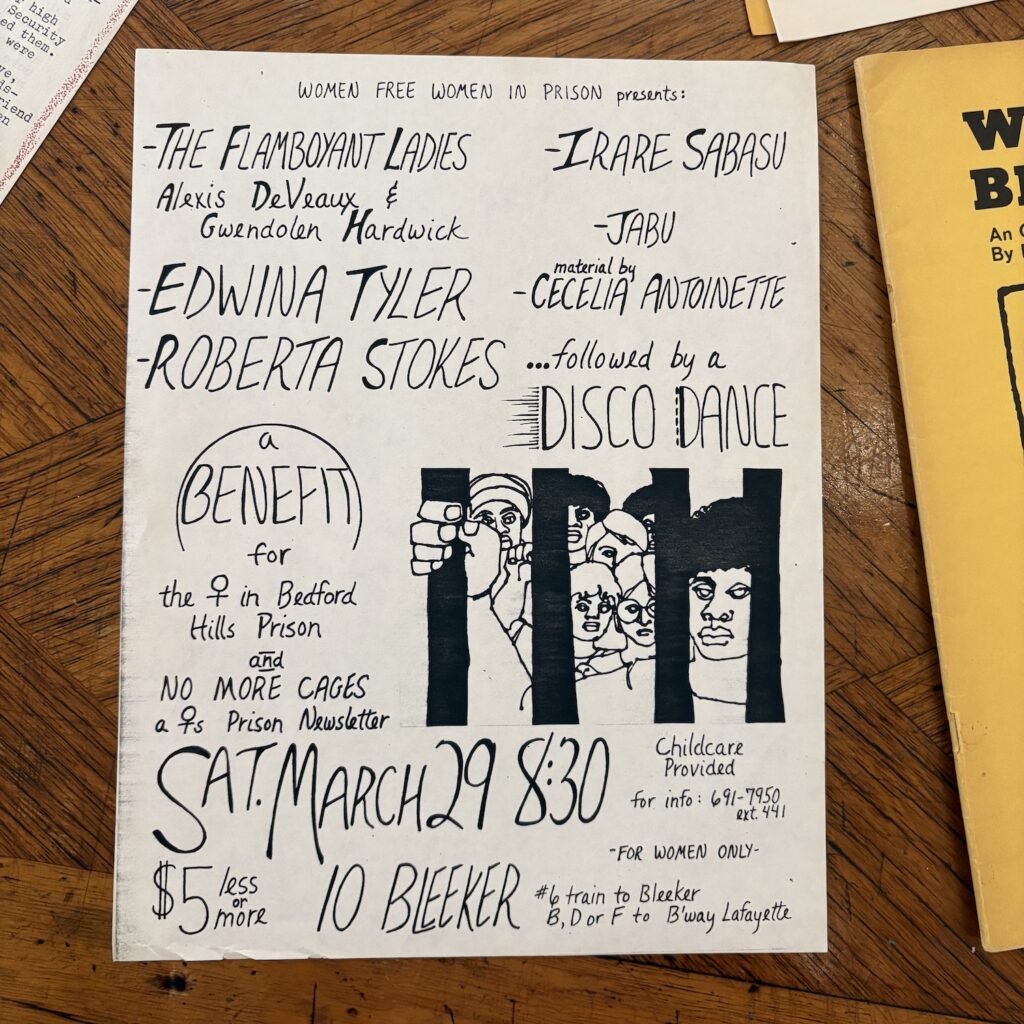 high
Security
ed them.
were
ve,
ds-
riend
en
WOMEN FREE WOMEN IN PRISON presents:
-THE FLAMBOYANT LADIES
Alexis DeVeaux &
Gwendolen Hardwick
-EDWINA TYLER
-ROBERTA STOKES
-IRARE SABASU
-JABU
material by
-CECELIA ANTOINETTE
...followed by a
DISCO DANCE
a
BENEFIT
for
the ♀ in Bedford
Hills Prison
and
NO MORE CAGES
a ♀s Prison Newsletter
SAT. MARCH 29 8:30
Childcare
Provided
for info: 691-7950
ext. 441
-FOR WOMEN ONLY-
$5 less
or
more
10 BLEEKER
#6 train to Bleeker
B, D or F to B'way Lafayette
W
B
An
By